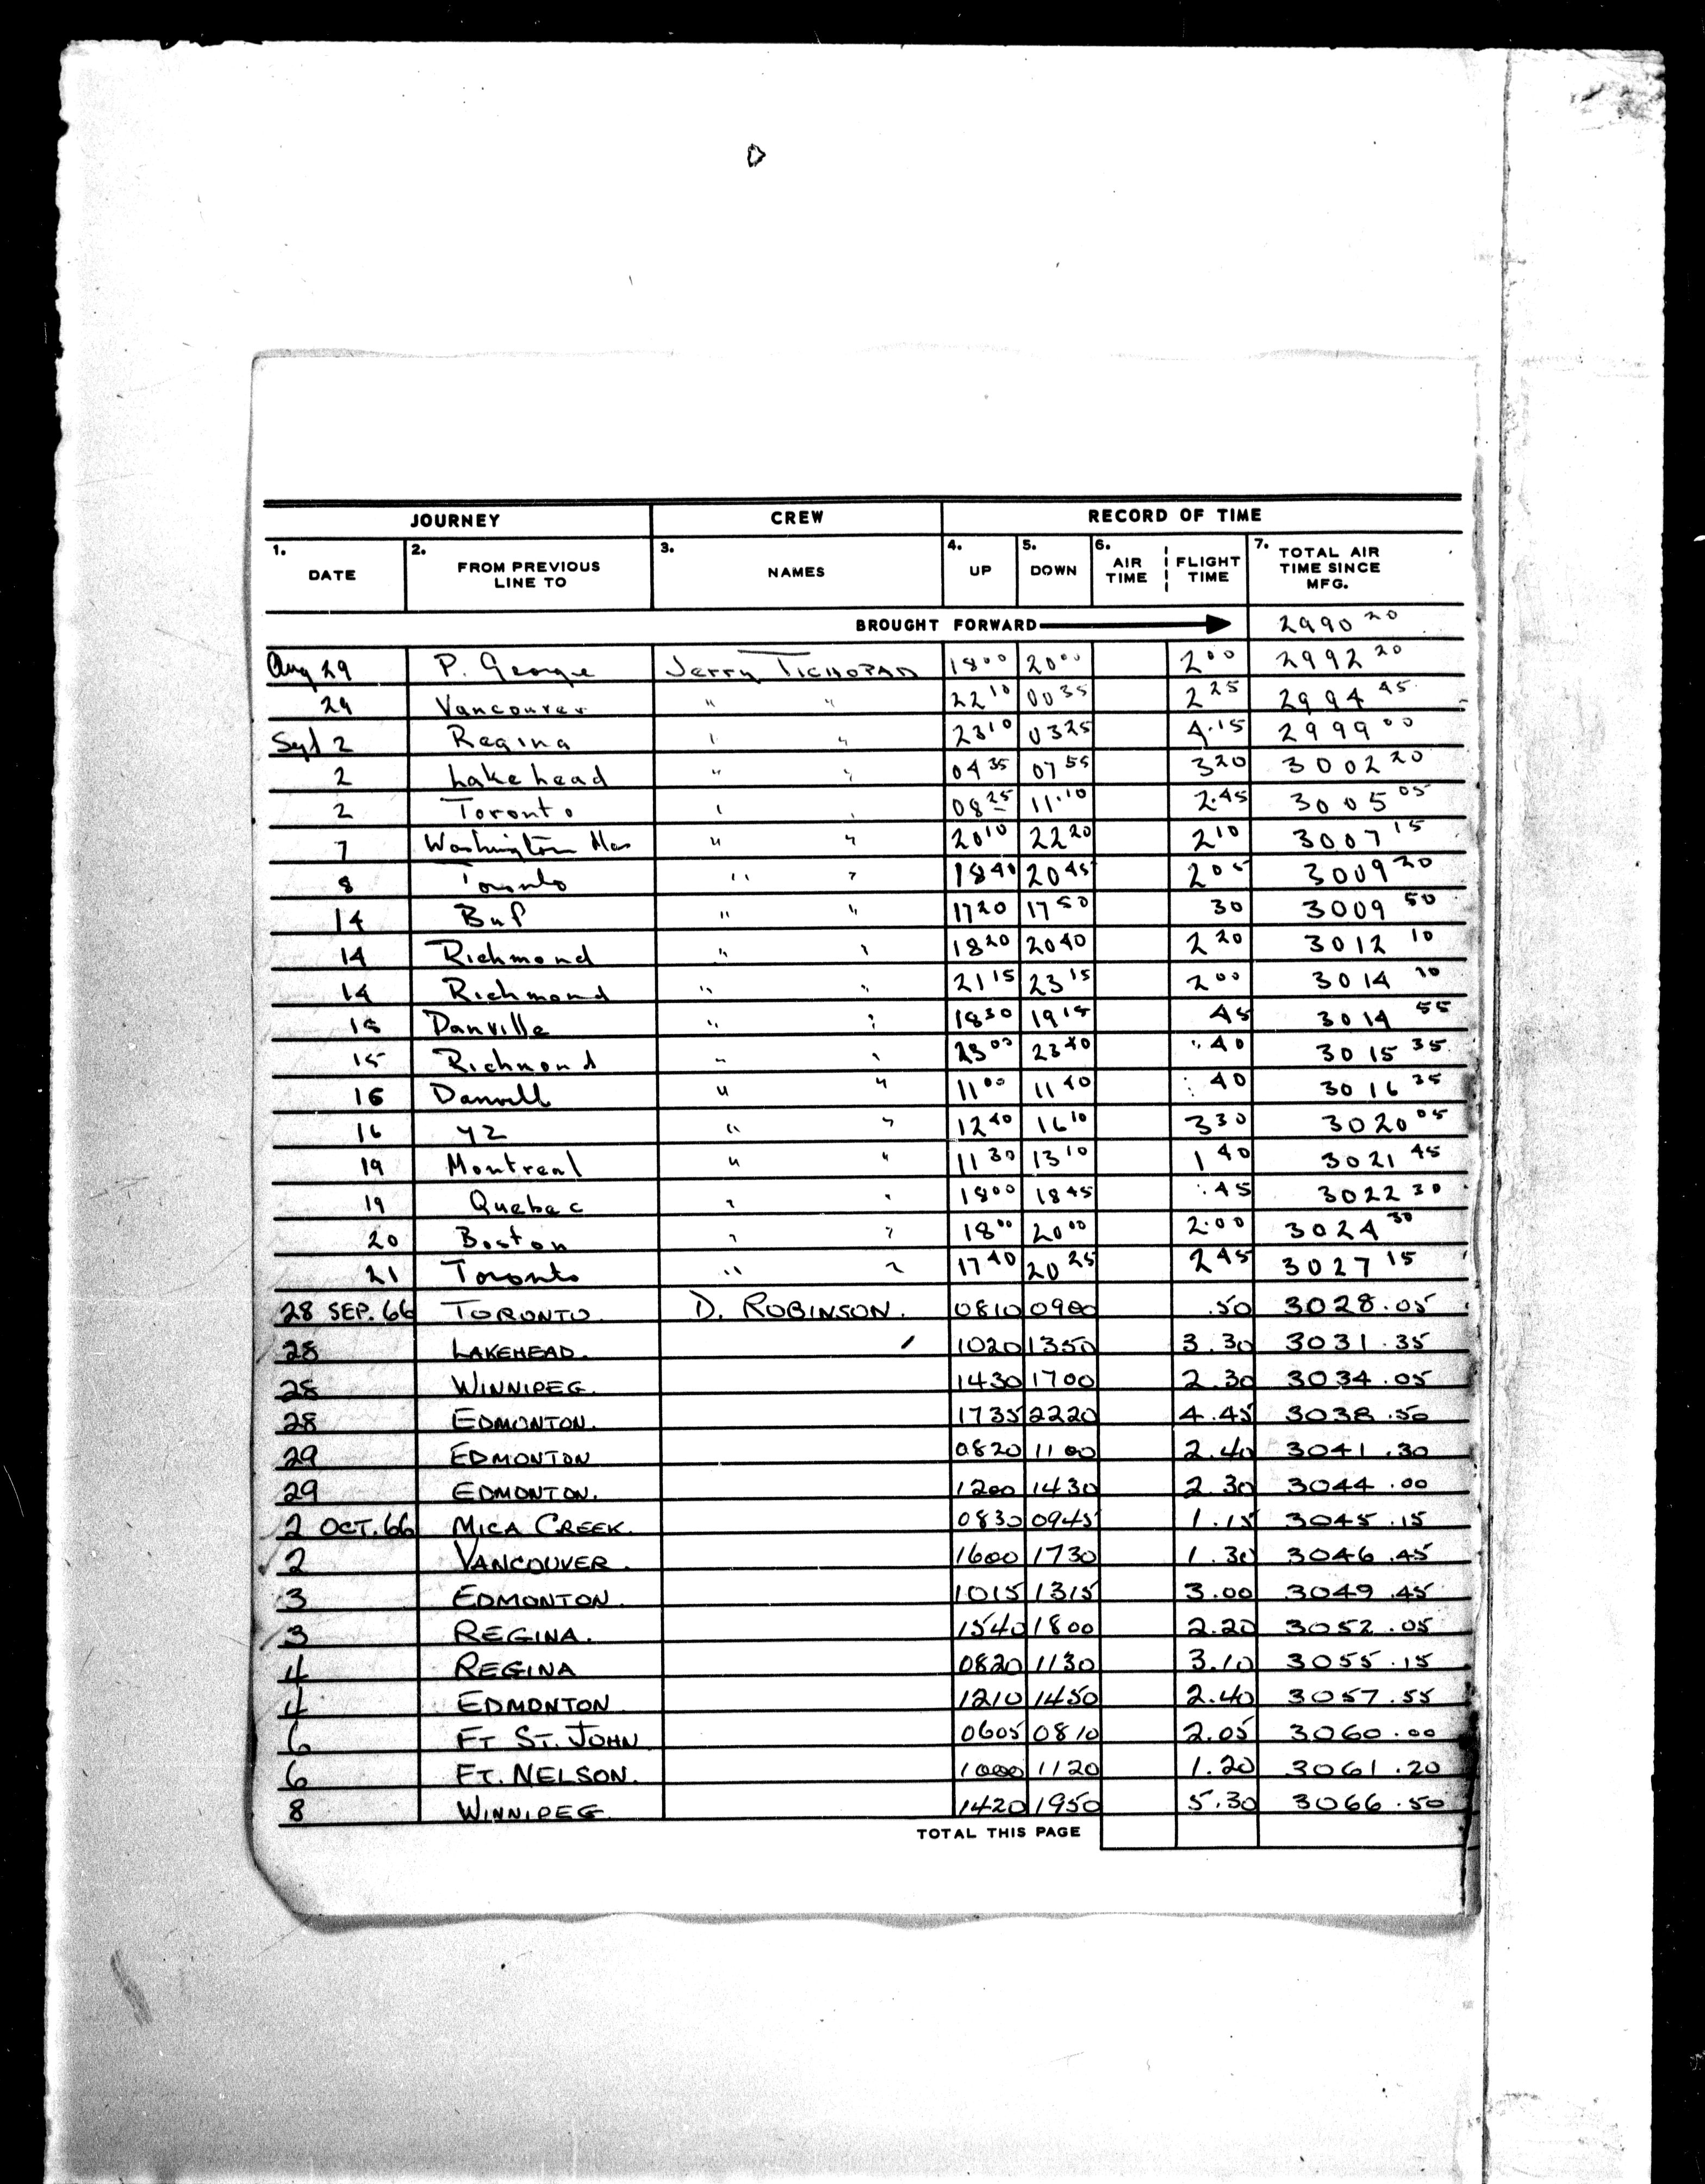 JOURNEY CREW RECORD OF TIME
1. DATE 2. FROM PREVIOUS LINE TO 3. NAMES 4. UP 5. DOWN 6. AIR TIME FLIGHT TIME 7. TOTAL AIR TIME SINCE MFG.
BROUGHT FORWARD 2990 20
Aug 29 P. George Jerry TICHOPAD 18 00 20 00 2 00 2992 20
29 Vancouver " " 22 10 00 35 2 25 2994 45
Sept 2 Regina " " 23 10 03 25 4.15 2999 00
2 Lakehead " " 04 35 07 55 3 20 3002 20
2 Toronto " " 08 25 11.10 2.45 3005 05
7 Washington " " 20 10 22 20 2 10 3007 15
8 Toronto " " 18 40 20 45 2 05 3009 20
14 Buf " " 17 20 17 50 30 3009 50
14 Richmond " " 18 20 20 40 2 20 3012 10
14 Richmond " " 21 15 23 15 2 00 3014 10
15 Danville " " 18 30 19 15 45 3014 55
15 Richmond " " 23 00 23 40 :40 3015 35
16 Danvill " " 11 00 11 40 :40 3016 35
16 YZ " " 12 40 16 10 3 30 3020 05
19 Montreal " " 11 30 13 10 1 40 3021 45
19 Quebec " " 18 00 18 45 :45 3022 30
20 Boston " " 18 00 20 00 2.00 3024 30
21 Toronto " " 17 40 20 25 2 45 3027 15
28 SEP. 66 TORONTO D. ROBINSON. 0810 0900 .50 3028.05
28 LAKEHEAD. 1020 1350 3.30 3031.35
28 WINNIPEG. 1430 1700 2.30 3034.05
28 EDMONTON. 1735 2220 4.45 3038.50
29 EDMONTON 0820 1100 2.40 3041.30
29 EDMONTON. 1200 1430 2.30 3044.00
2 OCT. 66 MICA CREEK. 0830 0945 1.15 3045.15
2 VANCOUVER. 1600 1730 1.30 3046.45
3 EDMONTON 1015 1315 3.00 3049.45
3 REGINA. 1540 1800 2.20 3052.05
4 REGINA 0820 1130 3.10 3055.15
4 EDMONTON 1210 1450 2.40 3057.55
6 FT ST. JOHN 0605 0810 2.05 3060.00
6 FT. NELSON. 1000 1120 1.20 3061.20
8 WINNIPEG 1420 1950 5.30 3066.50
TOTAL THIS PAGE